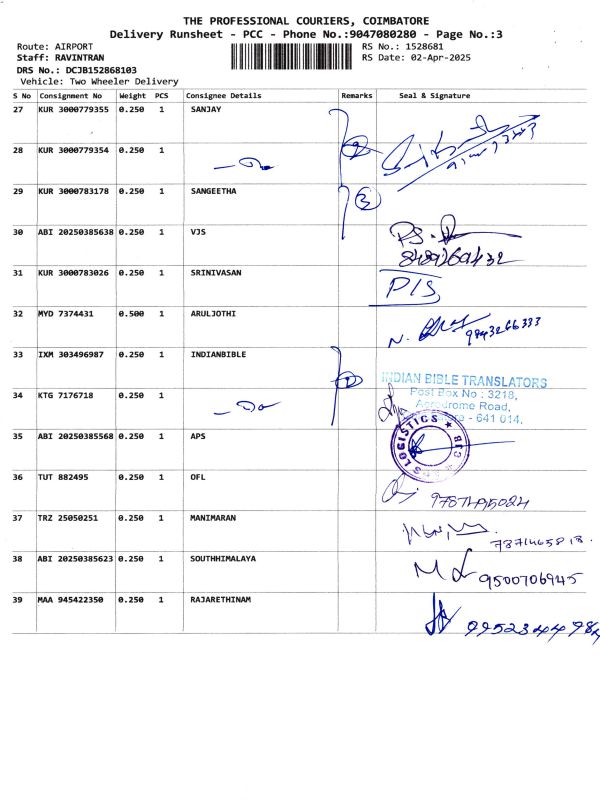 THE PROFESSIONAL COURIERS, COIMBATORE
Delivery Runsheet - PCC - Phone No.:9047080280 - Page No.:3
Route: AIRPORT RS No.: 1528681
Staff: RAVINTRAN RS Date: 02-Apr-2025
DRS No.: DCJB152868103
Vehicle: Two Wheeler Delivery
S No Consignment No Weight PCS Consignee Details Remarks Seal & Signature
27 KUR 3000779355 0.250 1 SANJAY
28 KUR 3000779354 0.250 1
29 KUR 3000783178 0.250 1 SANGEETHA
30 ABI 20250385638 0.250 1 VJS
31 KUR 3000783026 0.250 1 SRINIVASAN
P/S
32 MYD 7374431 0.500 1 ARULJOTHI
9843266333
33 IXM 303496987 0.250 1 INDIANBIBLE
INDIAN BIBLE TRANSLATORS
34 KTG 7176718 0.250 1
Post Box No : 3218,
Aerodrome Road,
- 641 014.
35 ABI 20250385568 0.250 1 APS
LOGISTICS ★ CJB
36 TUT 882495 0.250 1 OFL
37 TRZ 25050251 0.250 1 MANIMARAN
7871465818.
38 ABI 20250385623 0.250 1 SOUTHHIMALAYA
9500706945
39 MAA 945422350 0.250 1 RAJARETHINAM